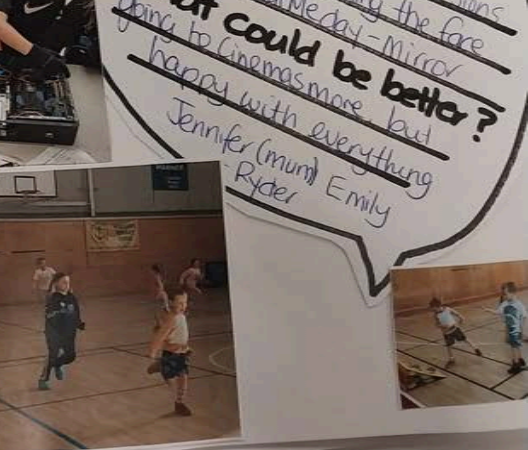 the face
meday-mirror
could be better?
going to cinemas more, but
happy with everything
Jennifer (mum) Emily
- Ryder